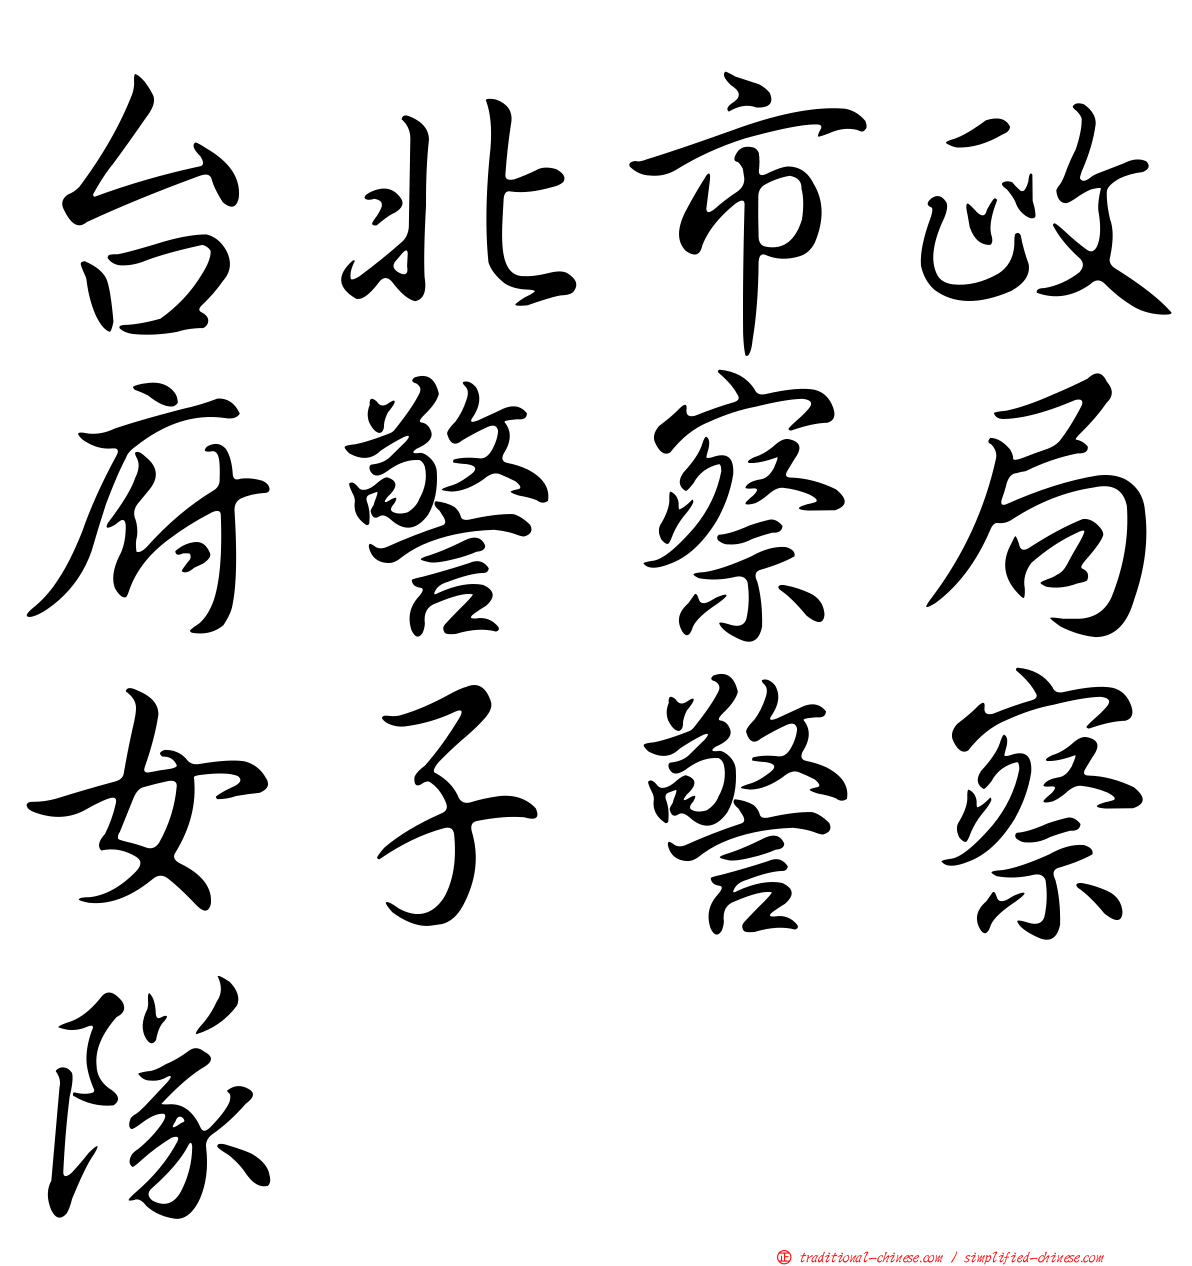 台北市政
府警察局
女子警察
隊
正 traditional-chinese.com / simplified-chinese.com